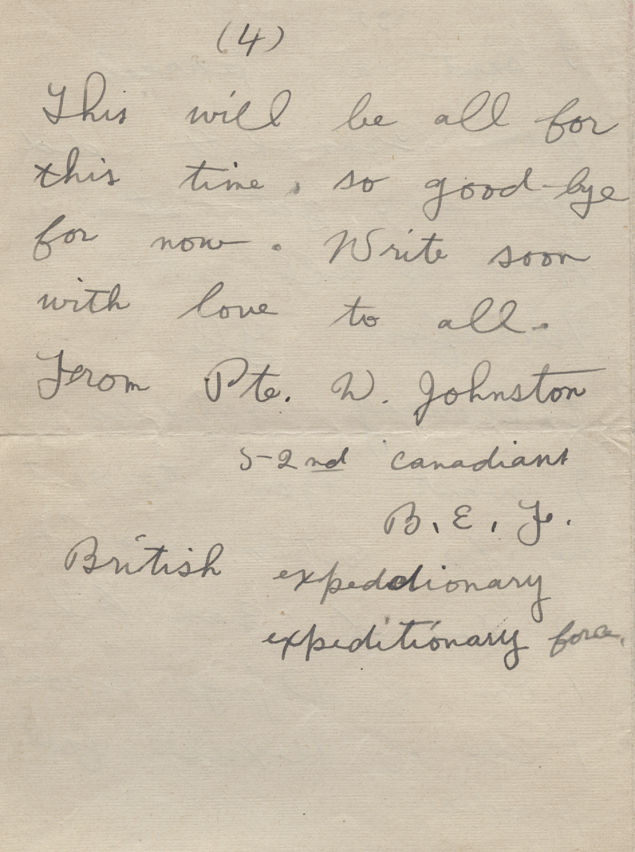 (4)
This will be all for
this time, so good-bye
for now. Write soon
with love to all.
From Pte. W. Johnston
52nd Canadians
B. E. F.
British expeddionary
expeditionary force.